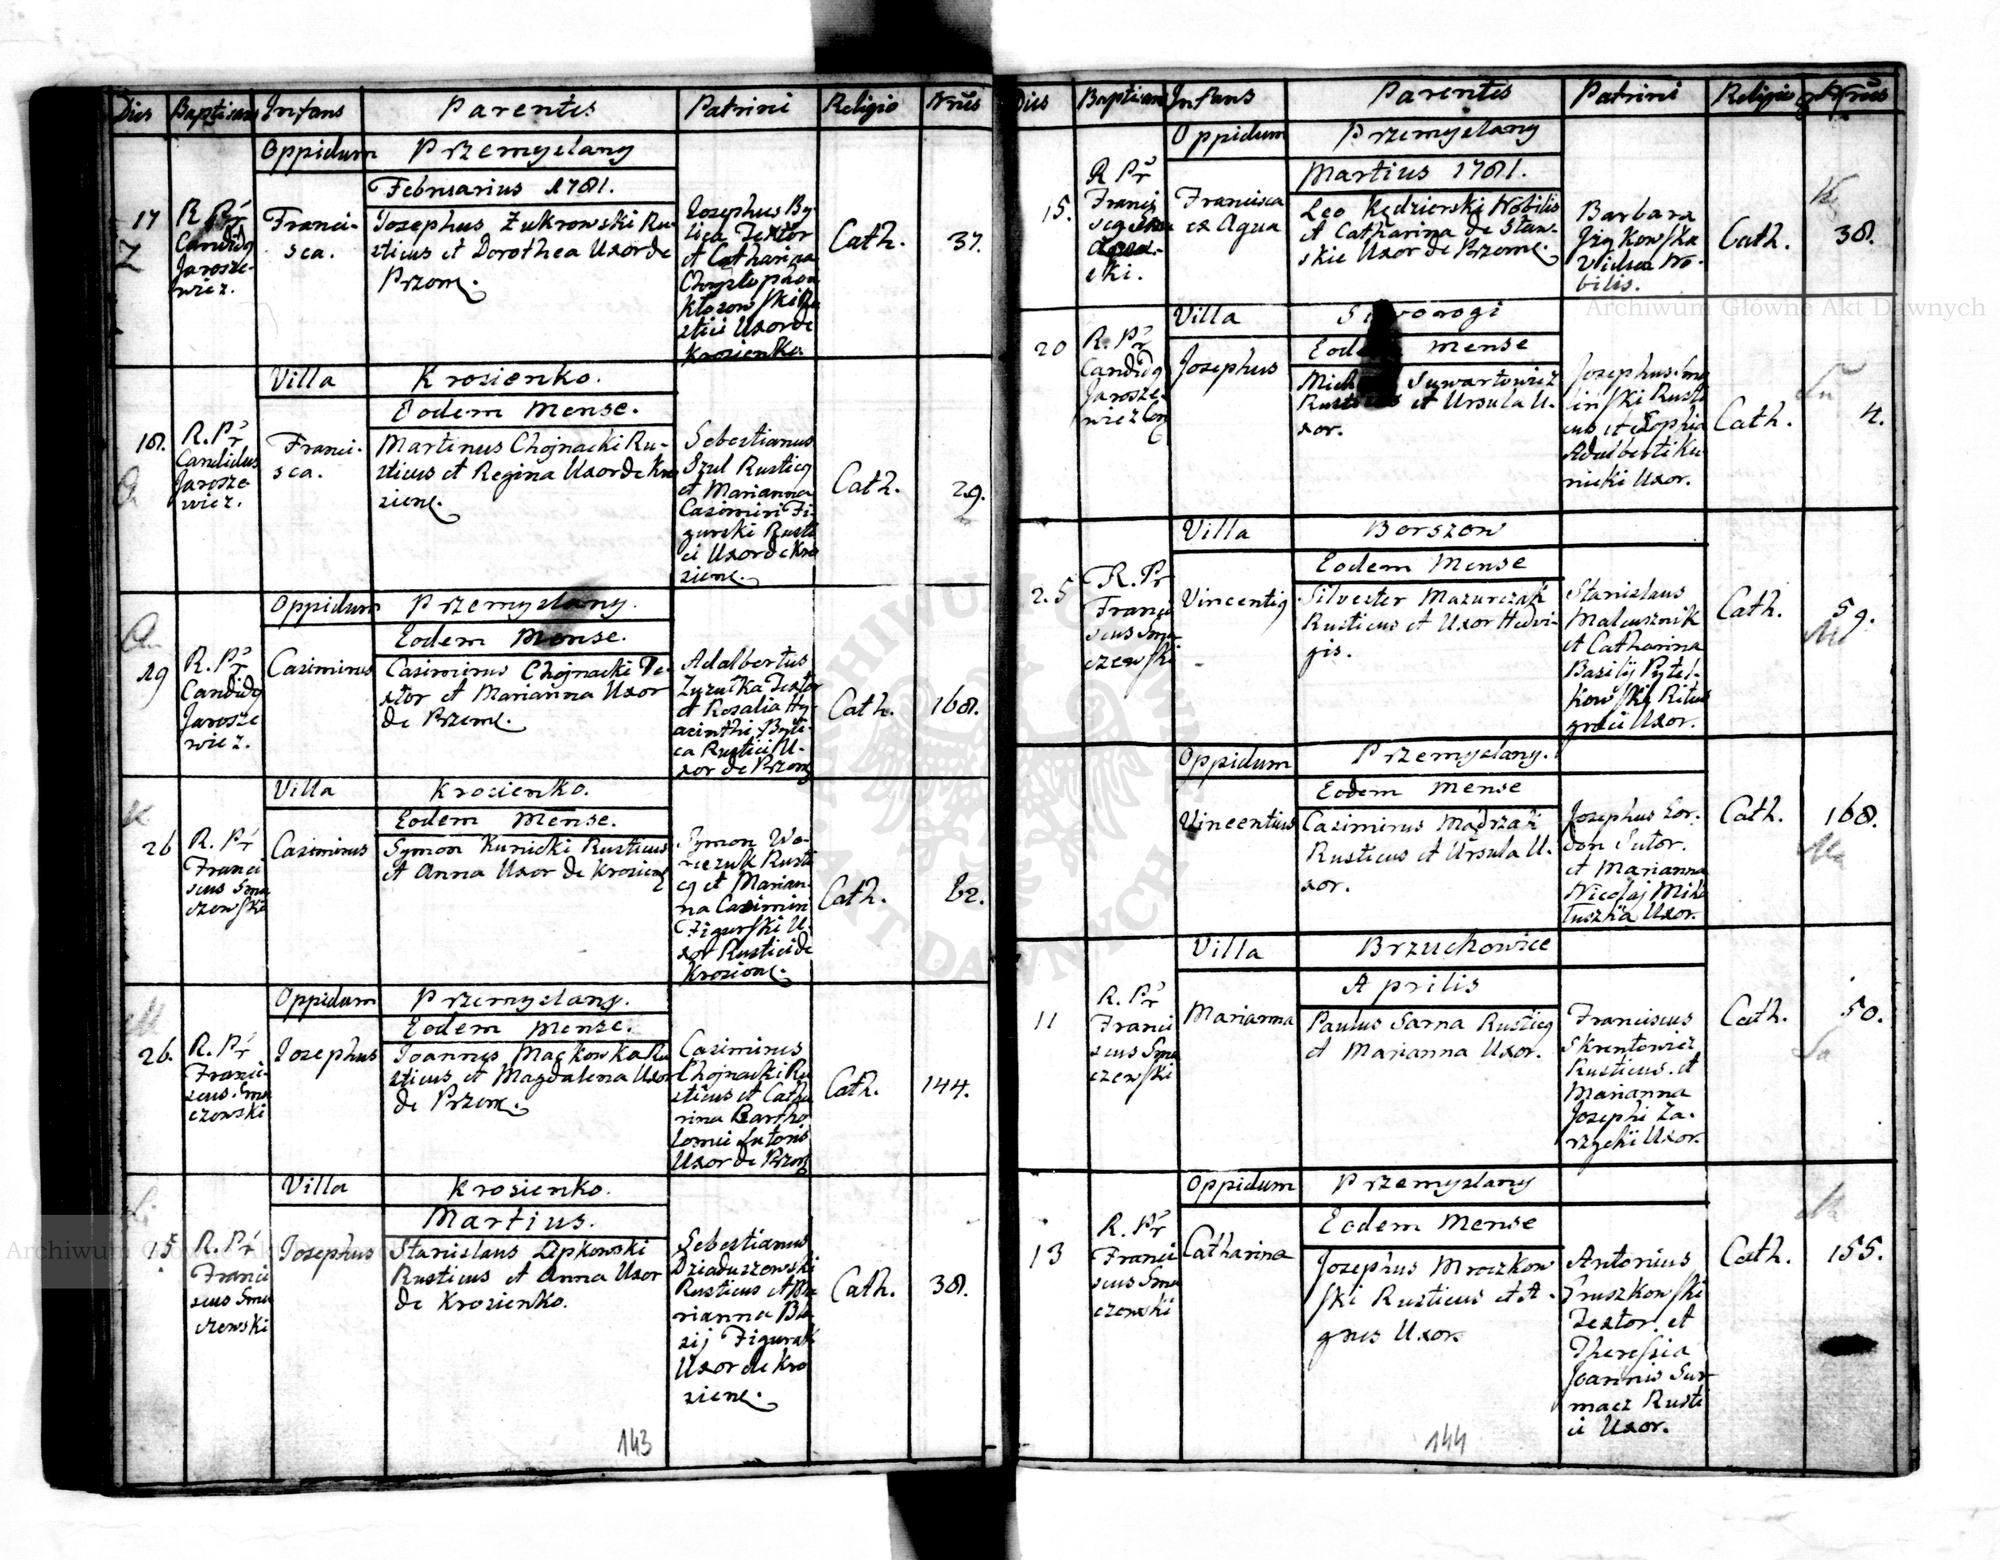 Dies Baptisans Infans Parentes Patrini Religio Nrus
Oppidum Przemyslany
Februarius 1781.
17
R. Pr
Candidg
Jarosze-
wicz.
Franci-
sca.
Josephus Zukrowski Ru-
sticus et Dorothea Uxor de
Przem.
Josephus By-
lica Textor
et Catharina
Klosowski Ru-
stici Uxor de
Krosienko.
Cath.
37.
Villa Krosienko.
Eodem Mense.
18.
R. Pr
Candidus
Jarosze
wicz.
Franci-
sca.
Martinus Chojnacki Ru-
sticus et Regina Uxor de Kro
sienc.
Sebestianus
Szul Rusticg
et Marianna
Casimiri Fi-
gurski Rusti
ci Uxor de Kro
sienc.
Cath.
29.
Oppidum Przemyslany.
Eodem Mense.
19
R. Pr
Candidg
Jarosze
wicz.
Casimirus
Casimirus Chojnacki Te-
xtor et Marianna Uxor
de Przem.
Adalbertus
Textor
et Rosalia Hy-
acinthi Byli-
ca Rustici U-
xor de Przem
Cath.
168.
Villa Krosienko.
Eodem Mense.
26
R. Pr
Franci
scus Sma
czewski
Casimirus
Symon Kunicki Rusticus
et Anna Uxor de Krosienc
Symon Wo-
Rusti
cg et Marian-
na Casimiri
Figurski U-
xor Rustici de
Krosienc.
Cath.
62.
Oppidum Przemyslany.
Eodem Mense.
26.
R. Pr
Franci-
scus Sma
czewski
Josephus
Joannes Mackowka Ru
sticus et Magdalena Uxor
de Przem.
Casimirus
Chojnacki Ru
sticus et Catha
rina Bartho
lomei Sutoris
Uxor de Przem
Cath.
144.
Villa Krosienko.
Martius.
15
R. Pr
Franci
scus Sma
czewski
Josephus
Stanislaus Lipkowski
Rusticus et Anna Uxor
de Krosienko.
Sebestianus
Dziaduszewski
Rusticus et Ma
rianna Bla
sij Figurski
Uxor de Kro
sienc.
Cath.
38.
143
Dies Baptisans Infans Parentes Patrini Religio Nrus
Oppidum Przemyslany
Martius 1781.
15.
R Pr
Francis
Francisca
ex Aqua
Leo Kędzierski Nobilis
et Catharina de Staw-
skie Uxor de Przem.
Barbara
Vidua No-
bilis.
Cath.
38.
Villa
Eodem mense
20
R. Pr
Candidg
Jarosze-
wicz
Josephus
Suwartowicz
et Ursula U-
xor.
Josephus Smo
linski Rusti
cus et Sophia
Adalberti Ku-
nicki Uxor.
Cath.
4.
Villa Borszow
Eodem Mense
25
R. Pr
Franci
scus Sma
czewski
Vincentig
Silvester Mazurczak
Rusticus et Uxor Hedvi-
gis.
Stanislaus
et Catharina
Basilij
Ritus
graeci Uxor.
Cath.
59.
Oppidum Przemyslany.
Eodem Mense
Vincentius
Casimirus Mądrzak
Rusticus et Ursula U-
xor.
Josephus Gor-
don Sutor.
et Marianna
Nicolaj
Uxor.
Cath.
168.
Villa Brzuchowice
Aprilis
11
R. Pr
Franci
scus Sma
czewski
Marianna
Paulus Sarna Rusticg
et Marianna Uxor.
Franciscus
Skrentowicz
Rusticus et
Marianna
Josephi Za-
rzycki Uxor.
Cath.
50.
Oppidum Przemyslany
Eodem Mense
13
R. Pr
Franci
scus Sma
czewski
Catharina
Josephus Mroczkow
ski Rusticus et A-
gnes Uxor.
Antonius
Gruszkowski
Textor et
Theresia
Joannis Sur-
macz Rusti
ci Uxor.
Cath.
155.
144
Archiwum Główne Akt Dawnych